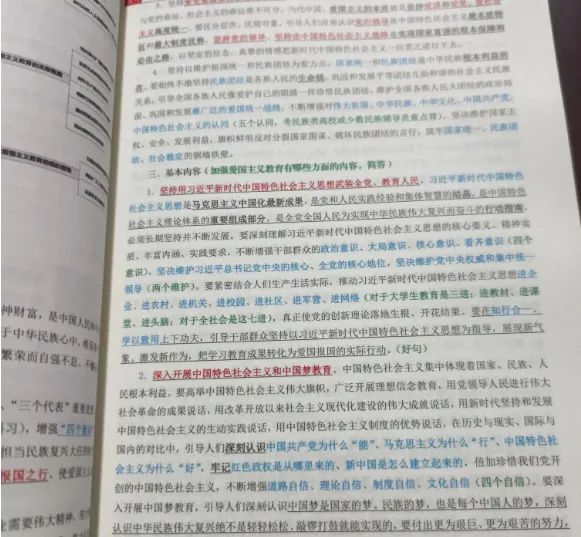 与党的命运、社会主义的命运密不可分。当代中国，爱国主义的本质就是坚持爱国和爱党、爱社会
主义高度统一。要区分层次、区别对象，引导人们深刻认识党的领导是中国特色社会主义最本质特
征和最大制度优势，坚持党的领导、坚持走中国特色社会主义道路是实现国家富强的根本保障和
必由之路，以坚定的信念、真挚的情感把新时代中国特色社会主义一以贯之进行下去。
4. 坚持以维护祖国统一和民族团结为着力点。国家统一和民族团结是中华民族根本利益所
在。要始终不渝坚持民族团结是各族人民的生命线，巩固和发展平等团结互助和谐的社会主义民族
关系，引导全国各族人民像爱护自己的眼睛一样珍惜民族团结，维护全国各族人民大团结的政治局
面，巩固和发展最广泛的爱国统一战线，不断增强对伟大祖国、中华民族、中华文化、中国共产党、
中国特色社会主义的认同（五个认同，考民族类高校或少数民族辅导员重点背），坚决维护国家主
权、安全、发展利益，旗帜鲜明反对分裂国家图谋、破坏民族团结的言行，筑牢国家统一、民族团
结、社会稳定的铜墙铁壁。
三、基本内容（加强爱国主义教育有哪些方面的内容，简答）
1. 坚持用习近平新时代中国特色社会主义思想武装全党、教育人民。习近平新时代中国特色
社会主义思想是马克思主义中国化最新成果，是党和人民实践经验和集体智慧的结晶，是中国特色
社会主义理论体系的重要组成部分，是全党全国人民为实现中华民族伟大复兴而奋斗的行动指南，
必须长期坚持并不断发展。要深刻理解习近平新时代中国特色社会主义思想的核心要义、精神实
质、丰富内涵、实践要求，不断增强干部群众的政治意识、大局意识、核心意识、看齐意识（四个
意识），坚决维护习近平总书记党中央的核心、全党的核心地位，坚决维护党中央权威和集中统一
领导（两个维护）。要紧密结合人们生产生活实际，推动习近平新时代中国特色社会主义思想进企
业、进农村、进机关、进校园、进社区、进军营、进网络（对于大学生教育是三进：进教材、进课
堂、进头脑；对于全社会是这七进），真正使党的创新理论落地生根、开花结果。要在知行合一、
学以致用上下功夫，引导干部群众坚持以习近平新时代中国特色社会主义思想为指导，展现新气
象、激发新作为，把学习教育成果转化为爱国报国的实际行动。（好句）
2. 深入开展中国特色社会主义和中国梦教育。中国特色社会主义集中体现着国家、民族、人
民根本利益。要高举中国特色社会主义伟大旗帜，广泛开展理想信念教育，用党领导人民进行伟大
社会革命的成果说话，用改革开放以来社会主义现代化建设的伟大成就说话，用新时代坚持和发展
中国特色社会主义的生动实践说话，用中国特色社会主义制度的优势说话，在历史与现实、国际与
国内的对比中，引导人们深刻认识中国共产党为什么“能”、马克思主义为什么“行”、中国特色社
会主义为什么“好”，牢记红色政权是从哪里来的、新中国是怎么建立起来的，倍加珍惜我们党开
创的中国特色社会主义，不断增强道路自信、理论自信、制度自信、文化自信（四个自信）。要深
入开展中国梦教育，引导人们深刻认识中国梦是国家的梦、民族的梦，也是每个中国人的梦，深刻
认识中华民族伟大复兴绝不是轻轻松松、敲锣打鼓就能实现的，要付出更为艰巨、更为艰苦的努力，
神财富，是中国人民和
于中华民族心中，维系
繁荣而自强不息、不懈
、“三个代表”重要思想
习），增强“四个意识”
担当民族复兴大任的时
报国之行，使爱国主义
业需要伟大精神，